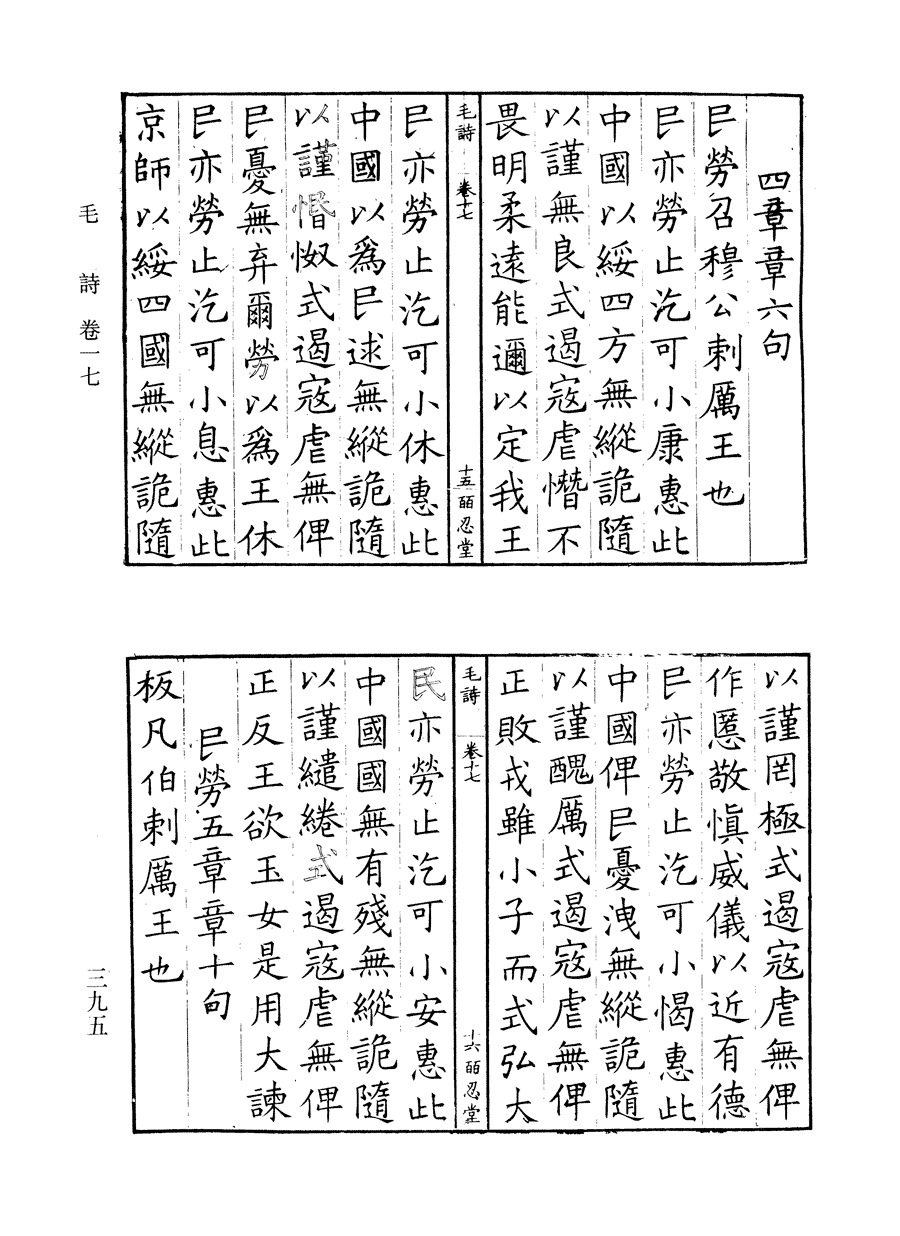 四章章六句
民勞召穆公刺厲王也
民亦勞止汔可小康惠此
中國以綏四方無縱詭隨
以謹無良式遏寇虐憯不
畏明柔遠能邇以定我王
毛詩 卷十七 十五 皕忍堂
民亦勞止汔可小休惠此
中國以爲民逑無縱詭隨
以謹惽怓式遏寇虐無俾
民憂無弃爾勞以爲王休
民亦勞止汔可小息惠此
京師以綏四國無縱詭隨
以謹罔極式遏寇虐無俾
作慝敬慎威儀以近有德
民亦勞止汔可小愒惠此
中國俾民憂洩無縱詭隨
以謹醜厲式遏寇虐無俾
正敗戎雖小子而式弘大
毛詩 卷十七 十六 皕忍堂
民亦勞止汔可小安惠此
中國國無有殘無縱詭隨
以謹繾綣式遏寇虐無俾
正反王欲玉女是用大諫
民勞五章章十句
板凡伯刺厲王也
毛詩 卷一七
三九五